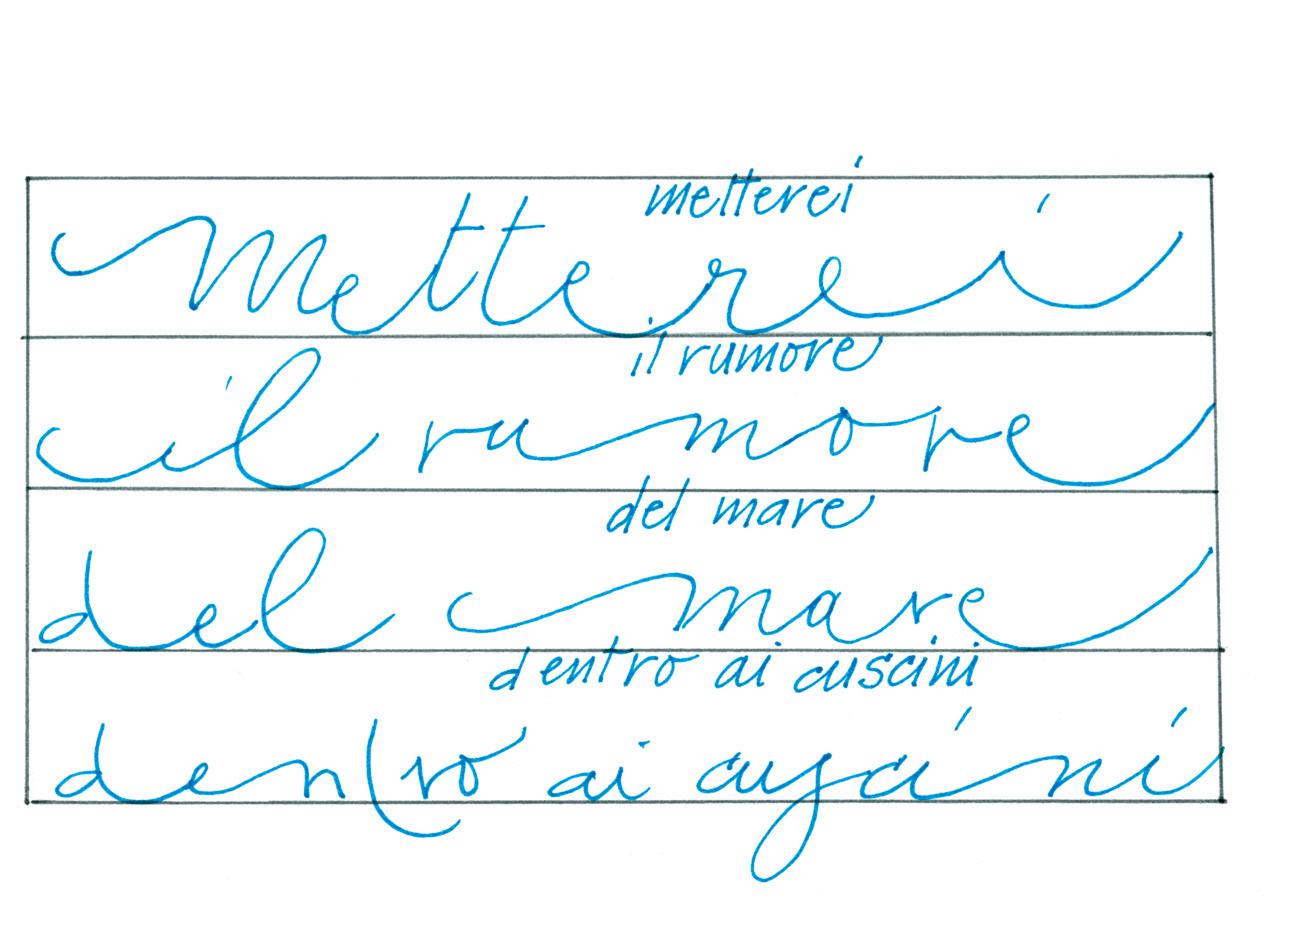 metterei
Metterei
il rumore
il rumore
del mare
del mare
dentro ai cuscini
dentro ai cuscini